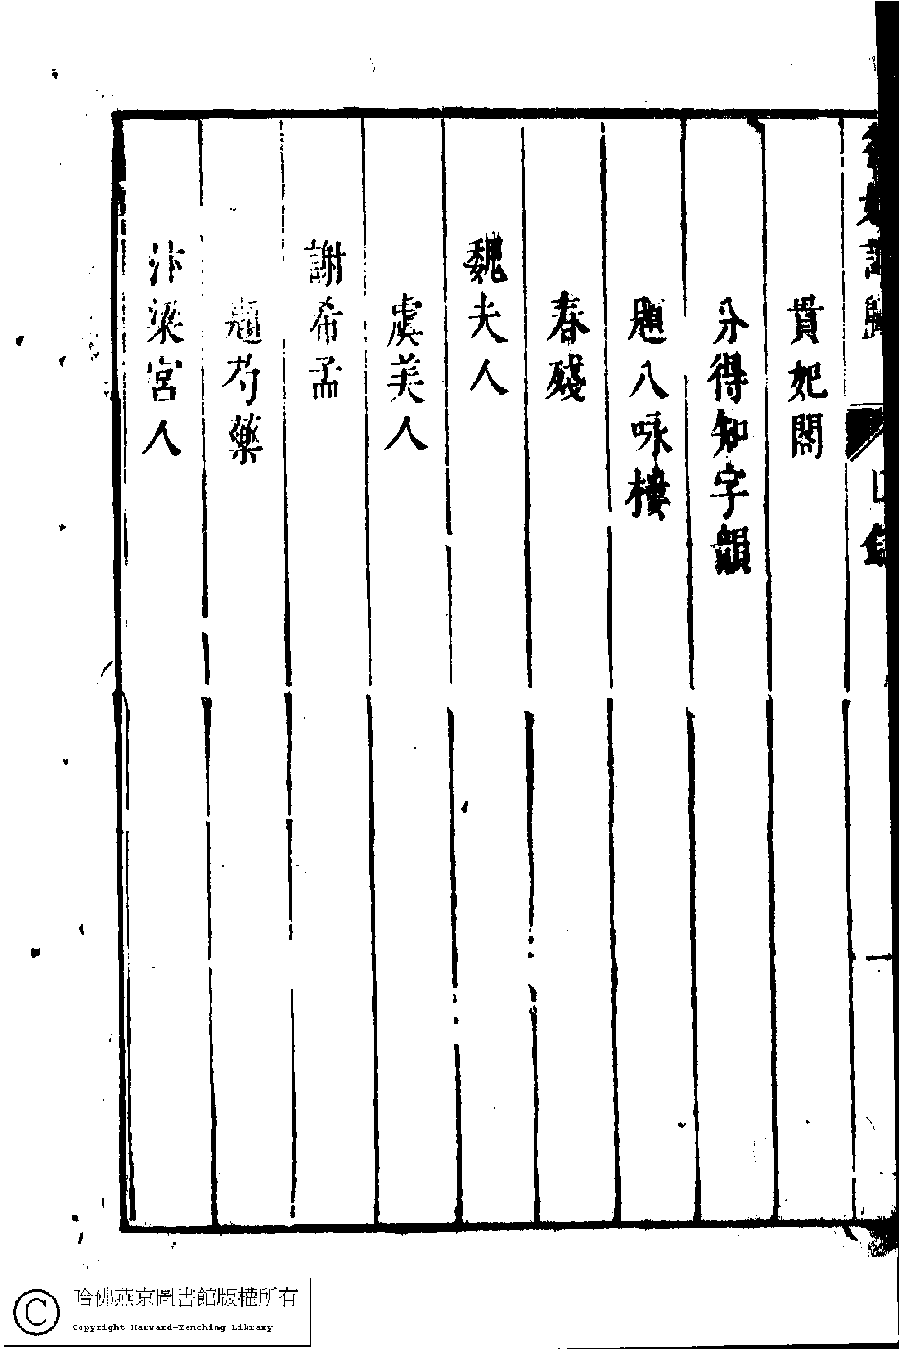 詩歸 目錄 一
貴妃閣
分得知字韻
題八咏樓
春殘
魏夫人
虞美人
謝希孟
題芍藥
汴梁宮人
哈佛燕京圖書館版權所有
Copyright Harvard-Yenching Library